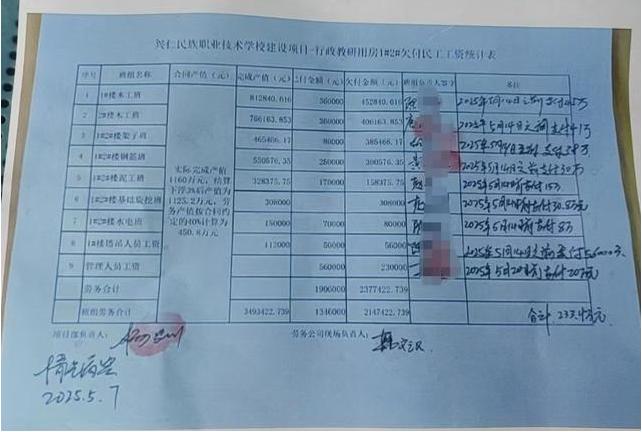 兴仁民族职业技术学校建设项目-行政教研用房1#2#欠付民工工资统计表
序号 班组名称 合同产值(元) 完成产值(元) 已付金额(元) 欠付金额(元) 班组负责人签字 备注
1 1#楼木工班 812840.616 360000 452840.616 2025年5月14日之前支付45万
2 2#楼木工班 766163.853 360000 406163.853 2025年5月14日之前支付41万
3 1#2#楼架子班 465466.17 80000 385466.17 2025年5月14日之前支付38万
4 1#2#楼钢筋班 550576.35 250000 300576.35 2025年5月14日之前支付30万
实际完成产值1160万元，结算下浮3%后产值为1125.2万元，劳务产值按合同约定的40%计算为450.8万元
5 1#2#楼泥工班 328375.75 170000 158375.75 2025年5月14日前支付15万
6 1#2#楼基础旋挖班 308000 308000 2025年5月14日前支付30.8万元
7 1#2#楼水电班 150000 70000 80000 2025年5月14日前支付8万
8 1#楼塔吊人员工资 112000 50000 56000 2025年5月14日之前支付56000元
9 管理人员工资 560000 230000 2025年5月20日前支付20万元
劳务合计 1906000 2377422.739
班组劳务合计 3493422.739 1346000 2147422.739 合计
项目部负责人： 劳务公司现场负责人：
情况属实
2025.5.7